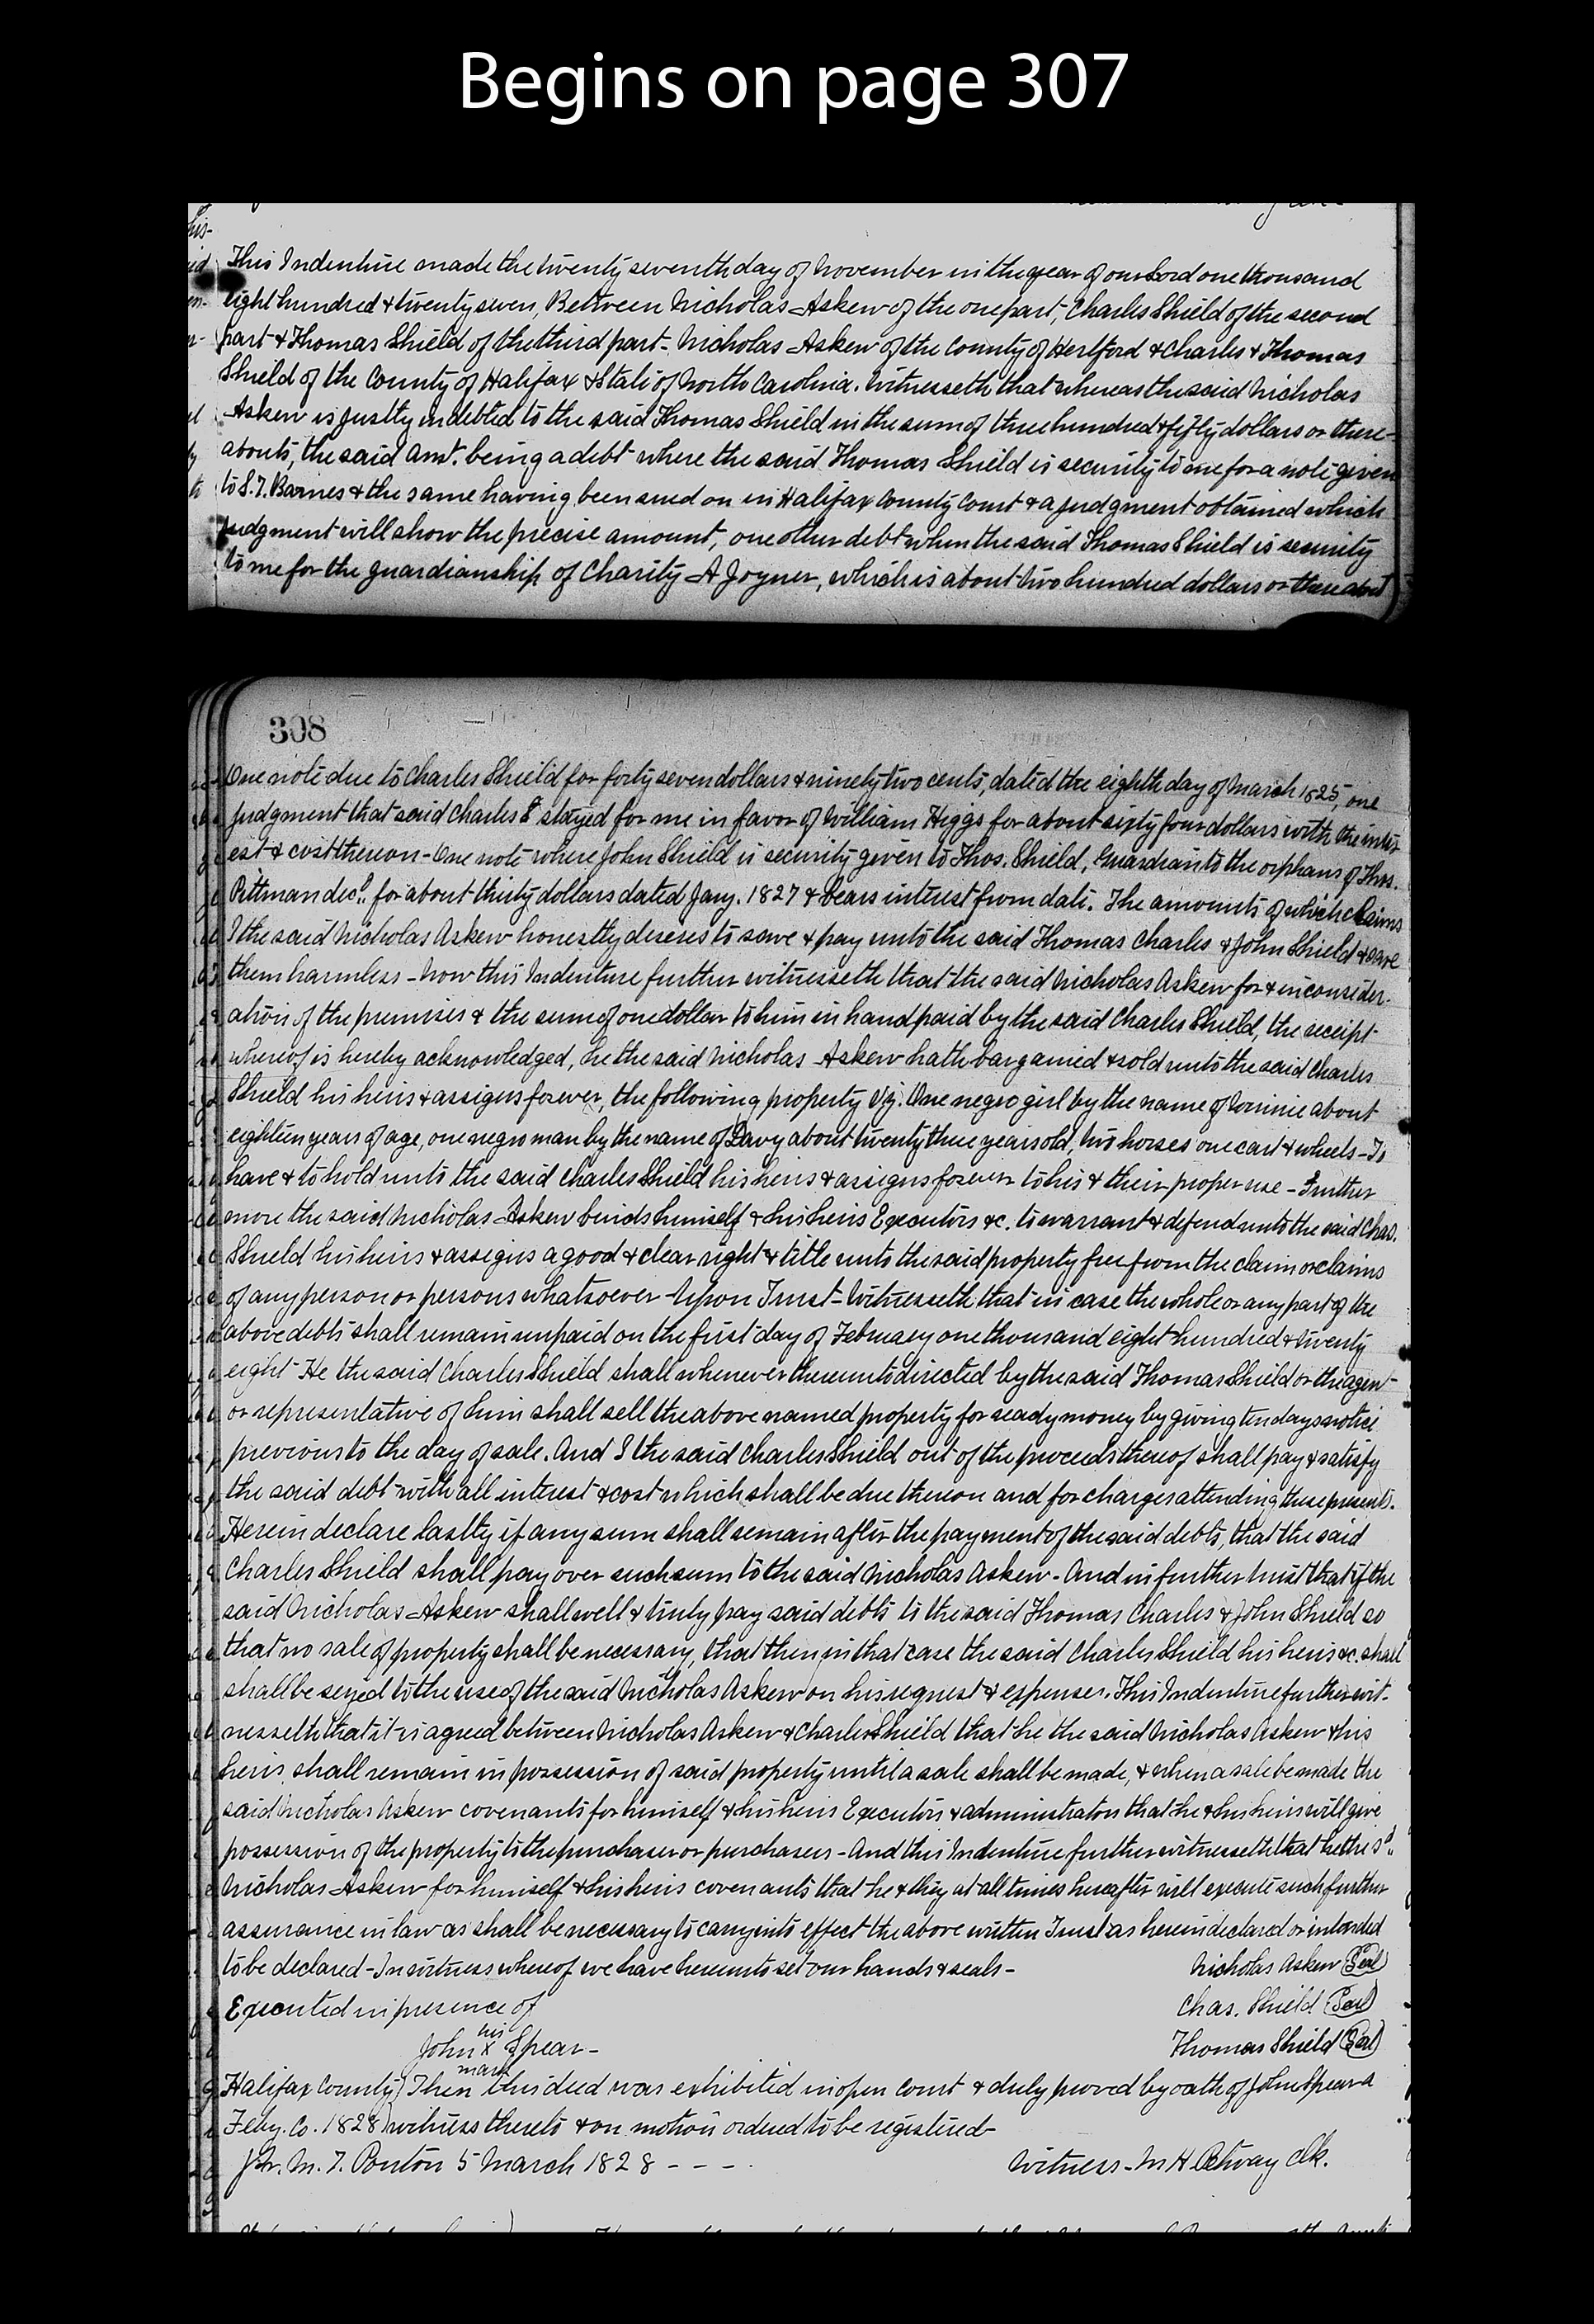 Begins on page 307
This Indenture made the twenty seventh day of November in the year of our Lord one thousand
eight hundred & twenty seven, Between Nicholas Askew of the one part, Charles Shield of the second
part & Thomas Shield of the third part - Nicholas Askew of the County of Hertford & Charles & Thomas
Shield of the County of Halifax & State of North Carolina. Witnesseth that whereas the said Nicholas
Askew is justly indebted to the said Thomas Shield in the sum of three hundred & fifty dollars or there-
abouts, the said amt. being a debt where the said Thomas Shield is security to me for a note given
to S. J. Barnes & the same having been sued on in Halifax County Court & a judgment obtained which
judgment will show the precise amount, one other debt when the said Thomas Shield is security
to me for the guardianship of Charity A Joyner, which is about two hundred dollars or there about
308
One note due to Charles Shield for forty seven dollars & ninety two cents, dated the eighth day of March 1825, one
judgment that said Charles S stayed for me in favor of William Higgs for about sixty four dollars with the inter
est & cost thereon - One note where John Shield is security given to Thos. Shield, Guardian to the orphans of Thos.
Pittman decd. for about thirty dollars dated Jany. 1827 & bears interest from date. The amounts of which claims
I the said Nicholas Askew honestly deseres to save & pay unto the said Thomas Charles & John Shield & save
them harmless - Now this Indenture further witnesseth that the said Nicholas Askew for & in consider-
ation of the premises & the sum of one dollar to him in hand paid by the said Charles Shield, the receipt
whereof is hereby acknowledged, he the said Nicholas Askew hath bargained & sold unto the said Charles
Shield his heirs & assigns forever, the following property Viz. One negro girl by the name of Winnie about
eighteen years of age, one negro man by the name of Davy about twenty three years old, two horses one cart & wheels - To
have & to hold unto the said Charles Shield his heirs & assigns forever to his & their proper use - Further
more the said Nicholas Askew binds himself & his heirs Executors &c. to warrant & defend unto the said Chas.
Shield his heirs & assigns a good & clear right & title unto the said property free from the claim or claims
of any person or persons whatsoever - Upon Trust - Witnesseth that in case the whole or any part of the
above debts shall remain unpaid on the first day of February one thousand eight hundred & twenty
eight He the said Charles Shield shall whenever thereunto directed by the said Thomas Shield or the agen
or representative of him shall sell the above named property for ready money by giving ten days notice
previous to the day of sale. And I the said Charles Shield out of the proceeds thereof shall pay & satisfy
the said debt with all interest & cost which shall be due thereon and for charges attending these presents.
Herein declare lastly if any sum shall remain after the payment of the said debts, that the said
Charles Shield shall pay over such sum to the said Nicholas Askew - And in further trust that if the
said Nicholas Askew shall well & truly pay said debts to the said Thomas Charles & John Shield so
that no sale of property shall be necessary, that then in that case the said Charles Shield his heirs &c. shall
shall be seized to the use of the said Nicholas Askew on his request & expense. This Indenture further wit-
nesseth that it is agreed between Nicholas Askew & Charles Shield that he the said Nicholas Askew & his
heirs shall remain in possession of said property until a sale shall be made, & when a sale be made the
said Nicholas Askew covenants for himself & his heirs Executors & administrators that he & his heirs will give
possession of the property to the purchaser or purchasers - And this Indenture further witnesseth that he the sd.
Nicholas Askew for himself & his heirs covenants that he & they at all times hereafter will execute such further
assurance in law as shall be necessary to carry into effect the above written Trust as herein declared or intended
to be declared - In witness whereof we have hereunto set our hands & seals - Nicholas Askew (Seal)
Executed in presence of Chas. Shield (Seal)
his
John X Spear - Thomas Shield (Seal)
mark
Halifax County } Then this deed was exhibited in open Court & duly proved by oath of John Spear a
Feby. Co. 1828 } witness thereto & on motion ordered to be registered -
Witness - M H Petway Clk.
M. T. Ponton 5 March 1828 - - -